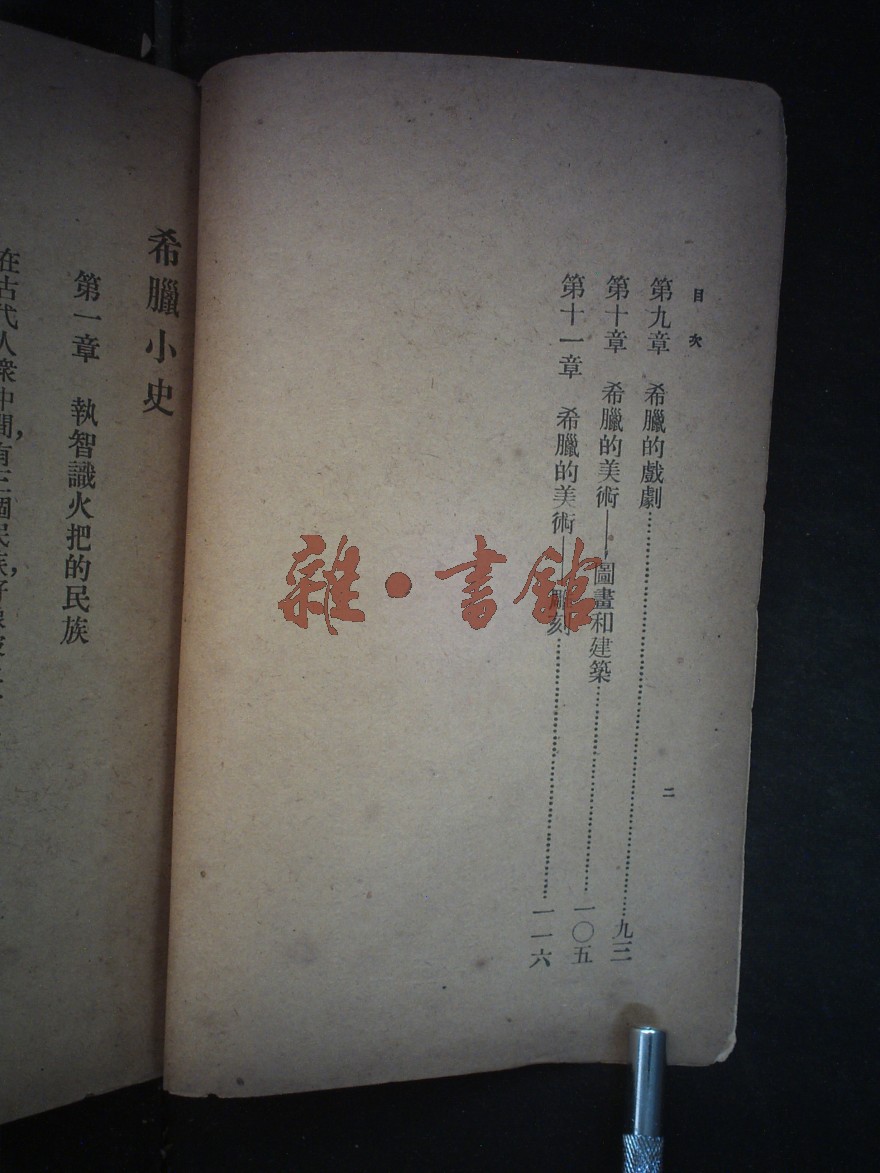 目次
第九章　希臘的戲劇……九三
第十章　希臘的美術——圖畫和建築……一〇五
第十一章　希臘的美術——雕刻……一一六
二
希臘小史
第一章　執智識火把的民族
在古代人衆中間，有三個民族，好像
雜·書館